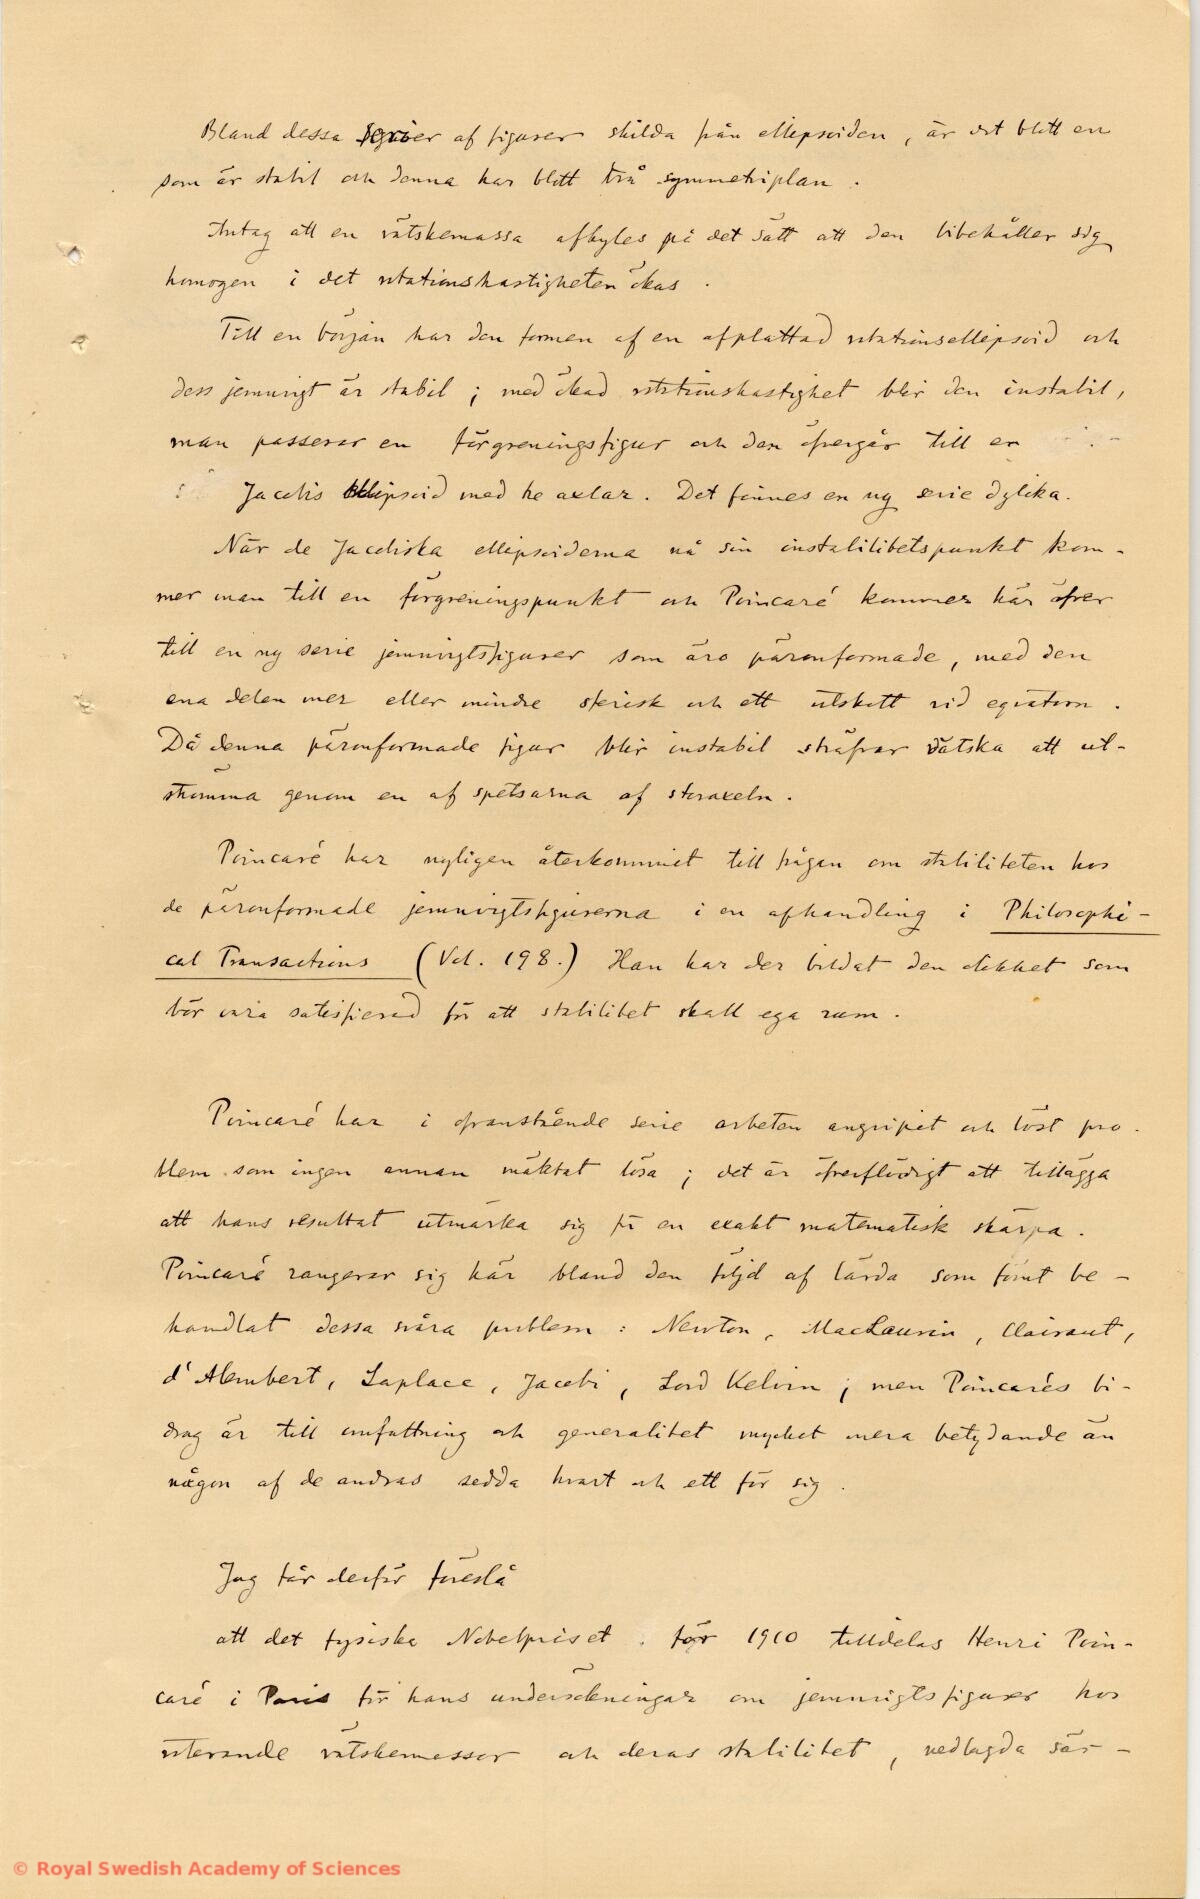 Bland dessa serier af figurer skilda från ellipsoiden, är det blott en
som är stabil och denna har blott två symmetriplan.
Antag att en vätskemassa afkyles på det sätt att den bibehåller sig
homogen i det rotationshastigheten ökas.
Till en början har den formen af en afplattad rotationsellipsoid och
dess jemnvigt är stabil; med ökad rotationshastighet blir den instabil,
man passerar en förgreningsfigur och den öfvergår till en
Jacobis Ellipsoid med tre axlar. Det finnes en ny serie dylika.
När de Jacobiska ellipsoiderna nå sin instabilitetspunkt kom-
mer man till en förgreningspunkt och Poincaré kommer här öfver
till en ny serie jemnvigtsfigurer som äro päronformade, med den
ena delen mer eller mindre sferisk och ett utskott vid eqvatorn.
Då denna päronformade figur blir instabil sträfvar vätska att ut-
strömma genom en af spetsarna af storaxeln.
Poincaré har nyligen återkommit till frågan om stabiliteten hos
de päronformade jemnvigtsfigurerna i en afhandling i Philosophi-
cal Transactions (Vol. 198.) Han har der bildat den olikhet som
bör vara satisfierad för att stabilitet skall ega rum.
Poincaré har i ofvanstående serie arbeten angripit och löst pro-
blem som ingen annan mäktat lösa; det är öfverflödigt att tillägga
att hans resultat utmärka sig för en exakt matematisk skärpa.
Poincaré rangerar sig här bland den följd af lärda som förut be-
handlat dessa svåra problem: Newton, MacLaurin, Clairaut,
d'Alembert, Laplace, Jacobi, Lord Kelvin; men Poincarés bi-
drag är till omfattning och generalitet mycket mera betydande än
någon af de andras sedda hvart och ett för sig.
Jag får derför föreslå
att det fysiska Nobelpriset för 1910 tilldelas Henri Poin-
caré i Paris för hans undersökningar om jemnvigtsfigurer hos
roterande vätskemassor och deras stabilitet, nedlagda sär-
© Royal Swedish Academy of Sciences